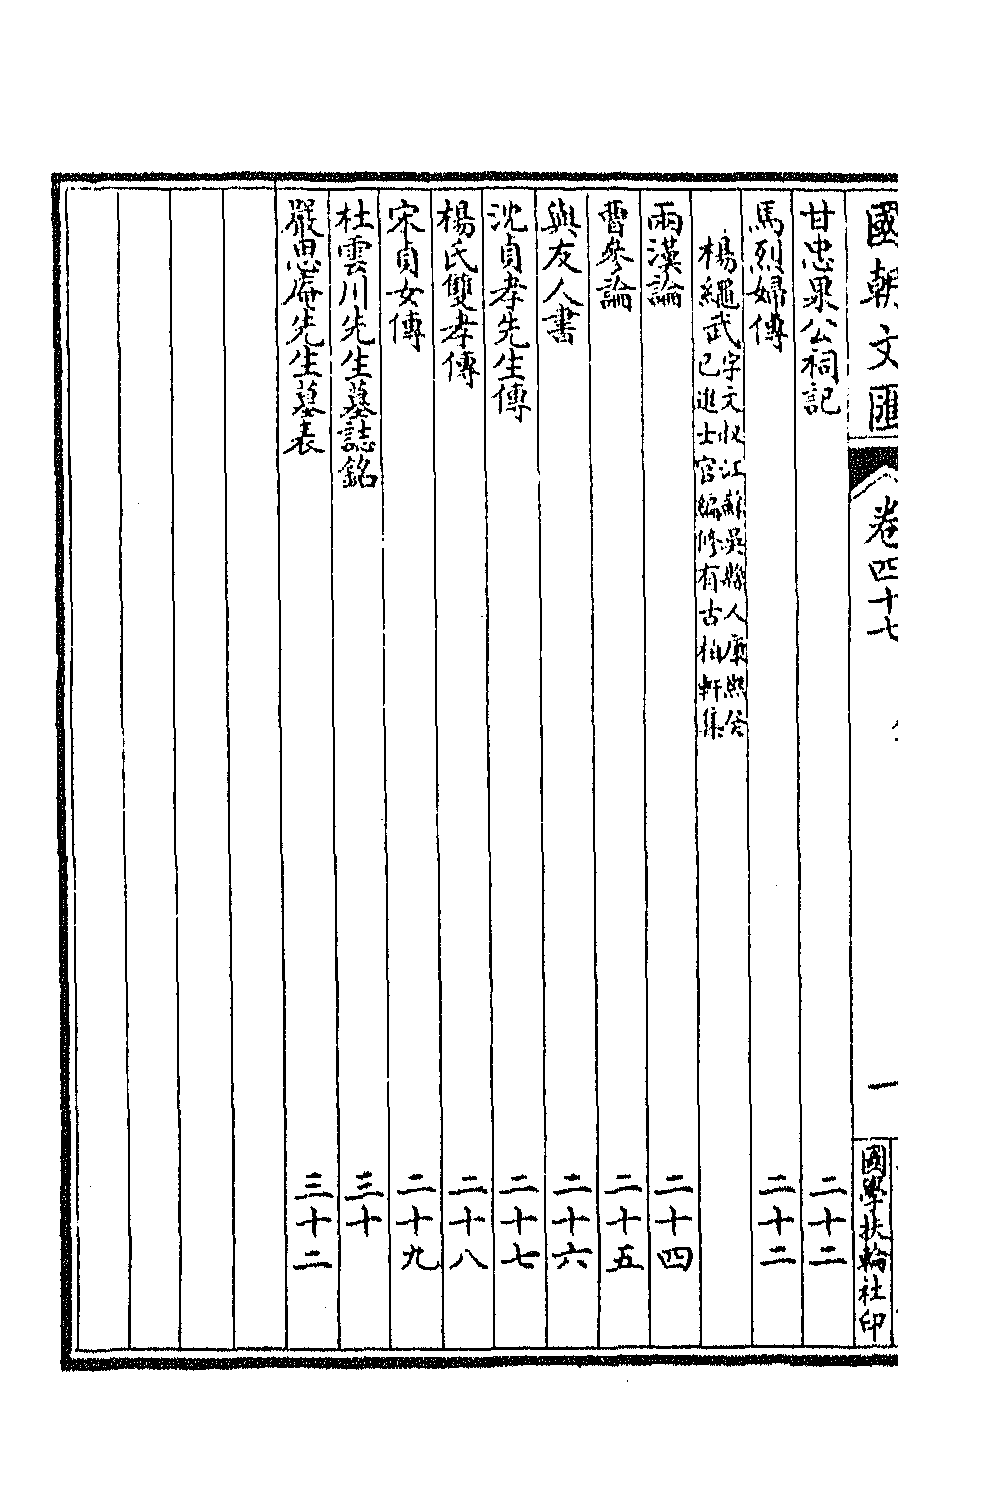 國朝文匯 卷四十七 一 國學扶輪社印
甘忠果公祠記 二十二
馬烈婦傳 二十二
楊繩武 字文叔江蘇吳縣人康熙癸巳進士官編修有古柏軒集
兩漢論 二十四
曹參論 二十五
與友人書 二十六
沈貞孝先生傳 二十七
楊氏雙孝傳 二十八
宋貞女傳 二十九
杜雲川先生墓誌銘 三十
嚴思庵先生墓表 三十二